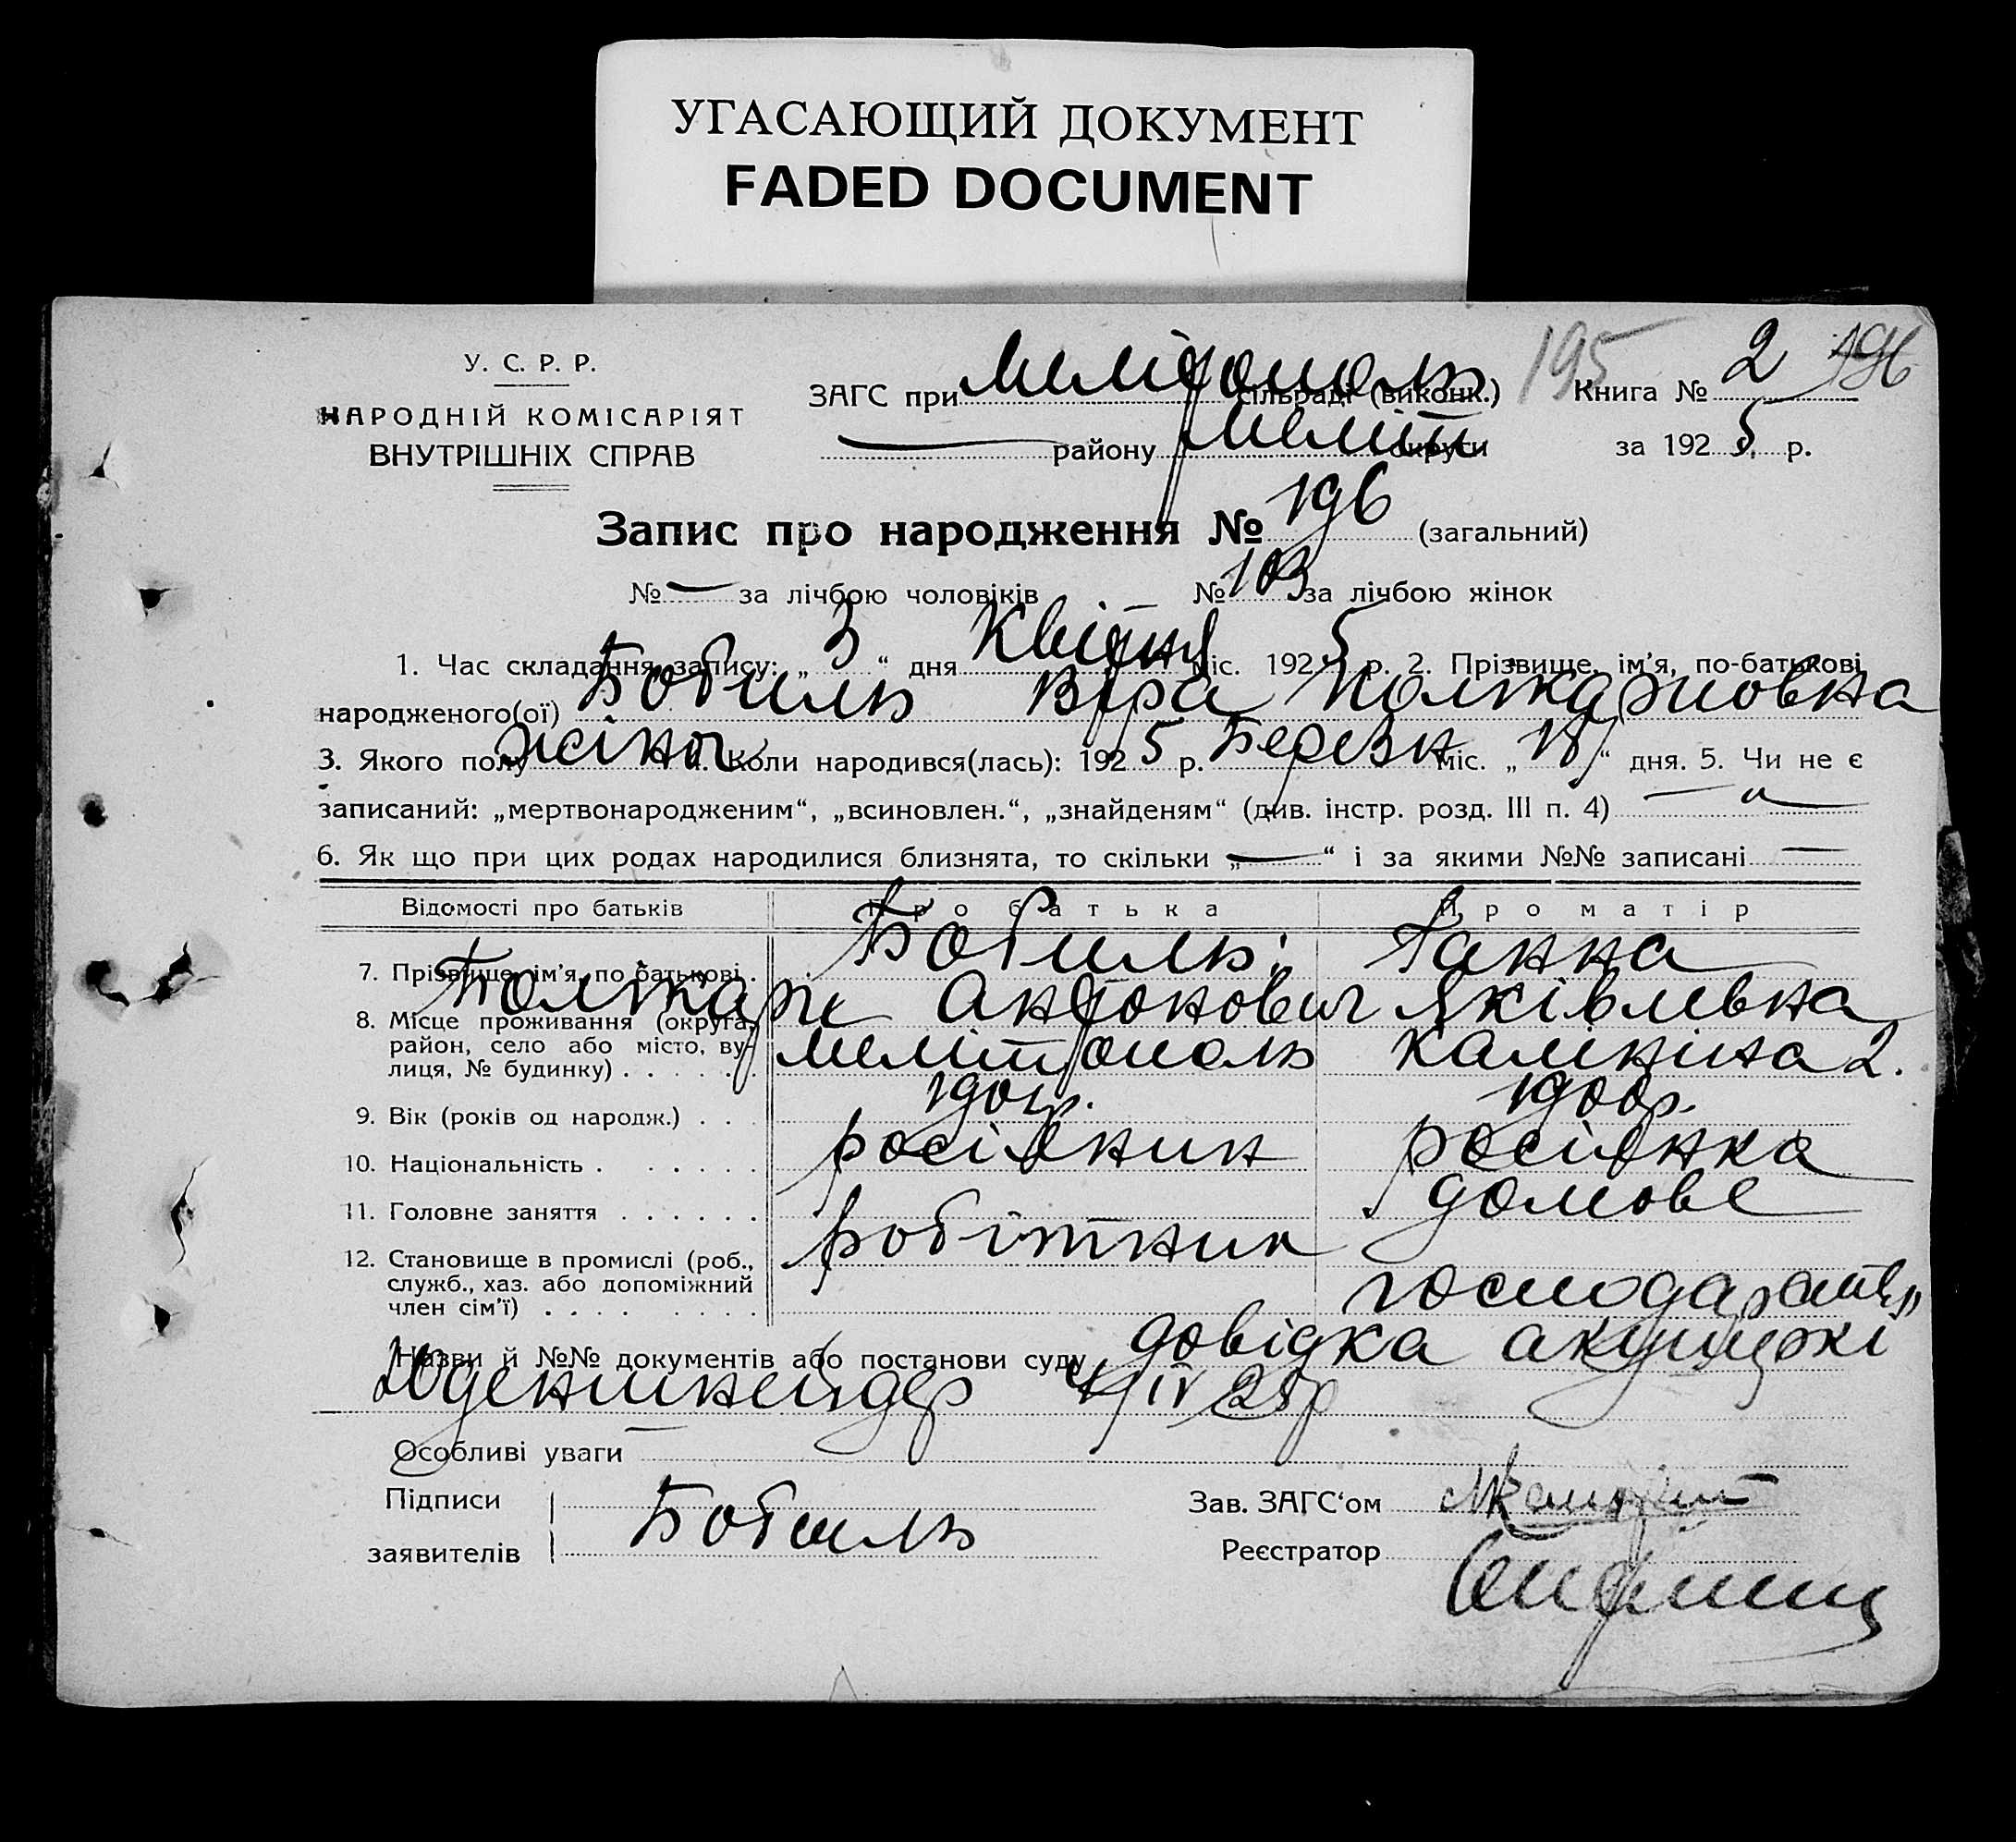 УГАСАЮЩИЙ ДОКУМЕНТ
FADED DOCUMENT
У. С. Р. Р.
НАРОДНІЙ КОМІСАРІЯТ
ВНУТРІШНІХ СПРАВ
ЗАГС при Мелітополь сільраді (виконк.)
195 Книга № 2 196
— району Меліт округи
за 1925 р.
Запис про народження № 196 (загальний)
№ — за лічбою чоловіків № 103 за лічбою жінок
1. Час складання запису: „ 3 “ дня Квітня міс. 1925 р. 2. Прізвище, ім’я, по-батькові
народженого(ої) Бобиль Віра Полікарповна
3. Якого полу жіноч 4. Коли народився(лась): 1925 р. Березн міс. „ 18 “ дня. 5. Чи не є
записаний: „мертвонародженим“, „всиновлен.“, „знайденям“ (див. інстр. розд. III п. 4) — „ —
6. Як що при цих родах народилися близнята, то скільки „ — “ і за якими №№ записані —
Відомості про батьків Про батька Про матір
7. Прізвище, ім’я, по батькові . Бобиль: Ганна
Полікарп Антонович Яківлевна
8. Місце проживання (округа,
район, село або місто, ву-
лиця, № будинку) . . . . . Мелітополь Калініна 2.
9. Вік (років од народж.) . . . 1901р. 1900р.
10. Національність . . . . . . росіянин росіянка
11. Головне заняття . . . . . . робітник домове
12. Становище в промислі (роб.,
служб., хаз. або допоміжний
член сім’ї) . . . . . . . . господарств
Назви й №№ документів або постанови суду довідка акушеркі
1/IV 25р
Особливі уваги —
Підписи
заявителів Бобиль
Зав. ЗАГС‘ом
Реєстратор